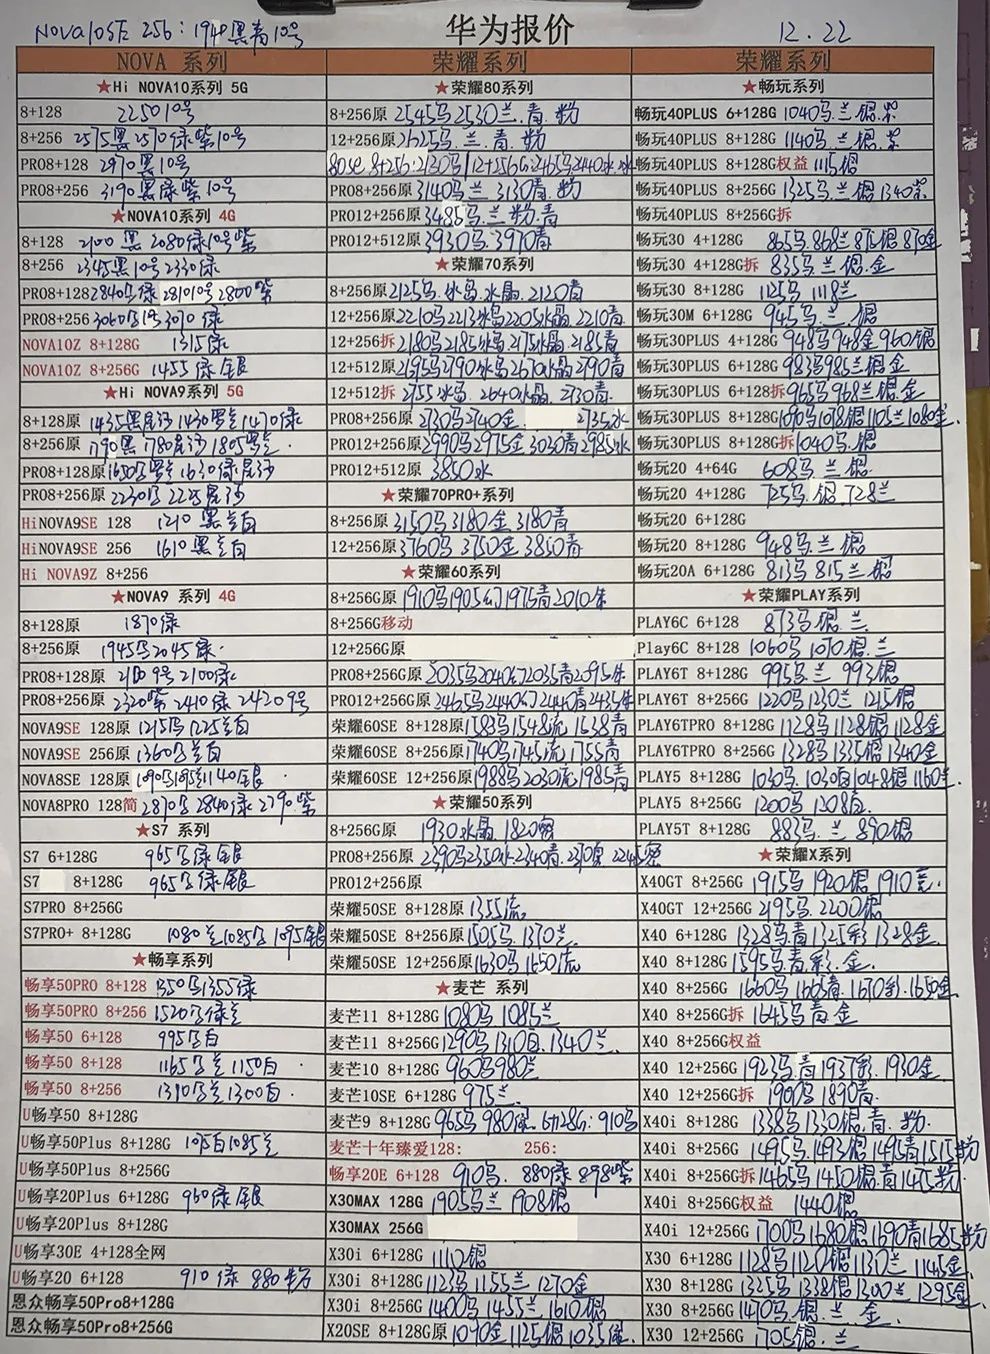 NOVA10SE 256: 1940黑青10号
华为报价
12.22
NOVA 系列
★Hi NOVA10系列 5G
8+128 2250 10号
8+256 2575黑2570绿紫10号
PRO8+128 2970黑10号
PRO8+256 3190黑绿紫10号
★NOVA10系列 4G
8+128 2100黑 2080绿10号紫
8+256 2345黑10号2330绿
PRO8+128 2840 绿 2810 10号 2800紫
PRO8+256 3070绿
NOVA10Z 8+128G 1315绿
NOVA10Z 8+256G 1455绿银
★Hi NOVA9系列 5G
8+128原 1435黑 1430 1470绿
8+256原 1790黑 1780 1805
PRO8+128原 1650 1630绿
PRO8+256原 2230 2225
HiNOVA9SE 128 1210黑 白
HiNOVA9SE 256 1610黑 白
Hi NOVA9Z 8+256
★NOVA9 系列 4G
8+128原 1870绿
8+256原 1945 2045绿
PRO8+128原 9号 2100绿
PRO8+256原 2320紫 2410绿 2420 9号
NOVA9SE 128原 1215 1225 白
NOVA9SE 256原 1360 白
NOVA8SE 128原 1140 银
NOVA8PRO 128简 2870 2840绿 2790紫
★S7 系列
S7 6+128G 965 绿银
S7 8+128G 965 绿银
S7PRO 8+256G
S7PRO+ 8+128G 1080兰1085 1095银
★畅享系列
畅享50PRO 8+128 1350 1355绿
畅享50PRO 8+256 1520 绿兰
畅享50 6+128 995 白
畅享50 8+128 1165 兰 1150白
畅享50 8+256 1310 兰1300白
U畅享50 8+128G
U畅享50Plus 8+128G 1075白1085兰
U畅享50Plus 8+256G
U畅享20Plus 6+128G 960绿银
U畅享20Plus 8+128G
U畅享30E 4+128全网
U畅享20 6+128 910 绿 880
恩众畅享50Pro8+128G
恩众畅享50Pro8+256G
荣耀系列
★荣耀80系列
8+256原 2545马2530兰.青.粉
12+256原 2625马.兰.青.粉
80SE 8+256:2130马/12+256G:2465马2440水
PRO8+256原 3140马兰 3130青.粉
PRO12+256原 3485马.兰粉.青
PRO12+512原 3930马.3970青
★荣耀70系列
8+256原 2125马.冰岛.水晶.2120青
12+256原 2210马2213冰岛2205水晶.2210青
12+256拆 2180马2185冰岛2175水晶.2185青
12+512原 2795马2790冰岛2670水晶2790青
12+512拆 2755冰岛.2640水晶.2730青
PRO8+256原 2730马2740金 2735水
PRO12+256原 2990马2975金3030青2985水
PRO12+512原 3850水
★荣耀70PRO+系列
8+256原 3150马3180金 3180青
12+256原 3760马 3750金 3850青
★荣耀60系列
8+256G原 1910马1905幻1975青2010朱
8+256G移动
12+256G原
PRO8+256G原 2035马2040幻2035青2095朱
PRO12+256G原 2465马2440幻2440青2435朱
荣耀60SE 8+128原 1583马1548流 1638青
荣耀60SE 8+256原 1740马1745流1755青
荣耀60SE 12+256原 1988马2030流1985青
★荣耀50系列
8+256G原 1930水晶.1820密
PRO8+256原 2390马2350水2340青 2245密
PRO12+256原
荣耀50SE 8+128原 1355流
荣耀50SE 8+256原 1505马.1370兰.
荣耀50SE 12+256原 1630马1650流
★麦芒 系列
麦芒11 8+128G 1080马1085兰
麦芒11 8+256G 1290马1310白.1340兰.
麦芒10 8+128G 960马980兰
麦芒10SE 6+128G 975兰.
麦芒9 8+128G 965马980绿.6+128G:910马
麦芒十年臻爱128: 256:
畅享20E 6+128 910马. 880绿 898紫
X30MAX 128G 1905马兰 1908银
X30MAX 256G
X30i 6+128G 1110银
X30i 8+128G 1123马1155兰1270金
X30i 8+256G 1400马1455兰.1610银
X20SE 8+128G原 1070金1125银1035
荣耀系列
★畅玩系列
畅玩40PLUS 6+128G 1040马.兰银.紫
畅玩40PLUS 8+128G 1140马.兰.银.紫
畅玩40PLUS 8+128G权益 1115银
畅玩40PLUS 8+256G 1325马.兰银1340紫
畅玩40PLUS 8+256G拆
畅玩30 4+128G 865马.868兰872银870金
畅玩30 4+128G拆 835马.兰.银.金
畅玩30 8+128G 1125马 1118兰
畅玩30M 6+128G 945马.兰.银
畅玩30PLUS 4+128G 948马948金960银
畅玩30PLUS 6+128G 983马985兰银金
畅玩30PLUS 6+128拆 965马968兰银.金
畅玩30PLUS 8+128G 1070马1078银1105兰1080金
畅玩30PLUS 8+128G拆 1040马.银
畅玩20 4+64G 608马.兰.银.
畅玩20 4+128G 725马.银.728兰
畅玩20 6+128G
畅玩20 8+128G 948马.兰.银
畅玩20A 6+128G 813马 815兰.银
★荣耀PLAY系列
PLAY6C 6+128 873马.银.兰
Play6C 8+128 1060马 1070银.兰
PLAY6T 8+128G 995马兰 993银
PLAY6T 8+256G 1220马1230兰 1215银
PLAY6TPRO 8+128G 1128马1128银1128金
PLAY6TPRO 8+256G 1328马1335银1340金
PLAY5 8+128G 1030马 1030白1048银1160
PLAY5 8+256G 1200马 1208白.
PLAY5T 8+128G 883马.兰 890银
★荣耀X系列
X40GT 8+256G 1915马 1920银 1910竞.
X40GT 12+256G 2195马.2200银
X40 6+128G 1328马青1325彩1328金
X40 8+128G 1595马青.彩.金.
X40 8+256G 1660马1665青.1670彩.1650金
X40 8+256G拆 1645马青金
X40 8+256G权益
X40 12+256G 1923马.青1937彩.1930金
X40 12+256G拆 1900马1890青.
X40i 8+128G 1338马1330银.青.粉.
X40i 8+256G 1495马.1493银1495青1515粉
X40i 8+256G拆 1465马1450银.青1475粉
X40i 8+256G权益 1440银
X40i 12+256G 1700马1680银1690青1685粉
X30 6+128G 1128马1120银1130兰 1145金
X30 8+128G 1325马1338银1300兰1295金.
X30 8+256G 1470马.银.兰.金
X30 12+256G 1705银.兰